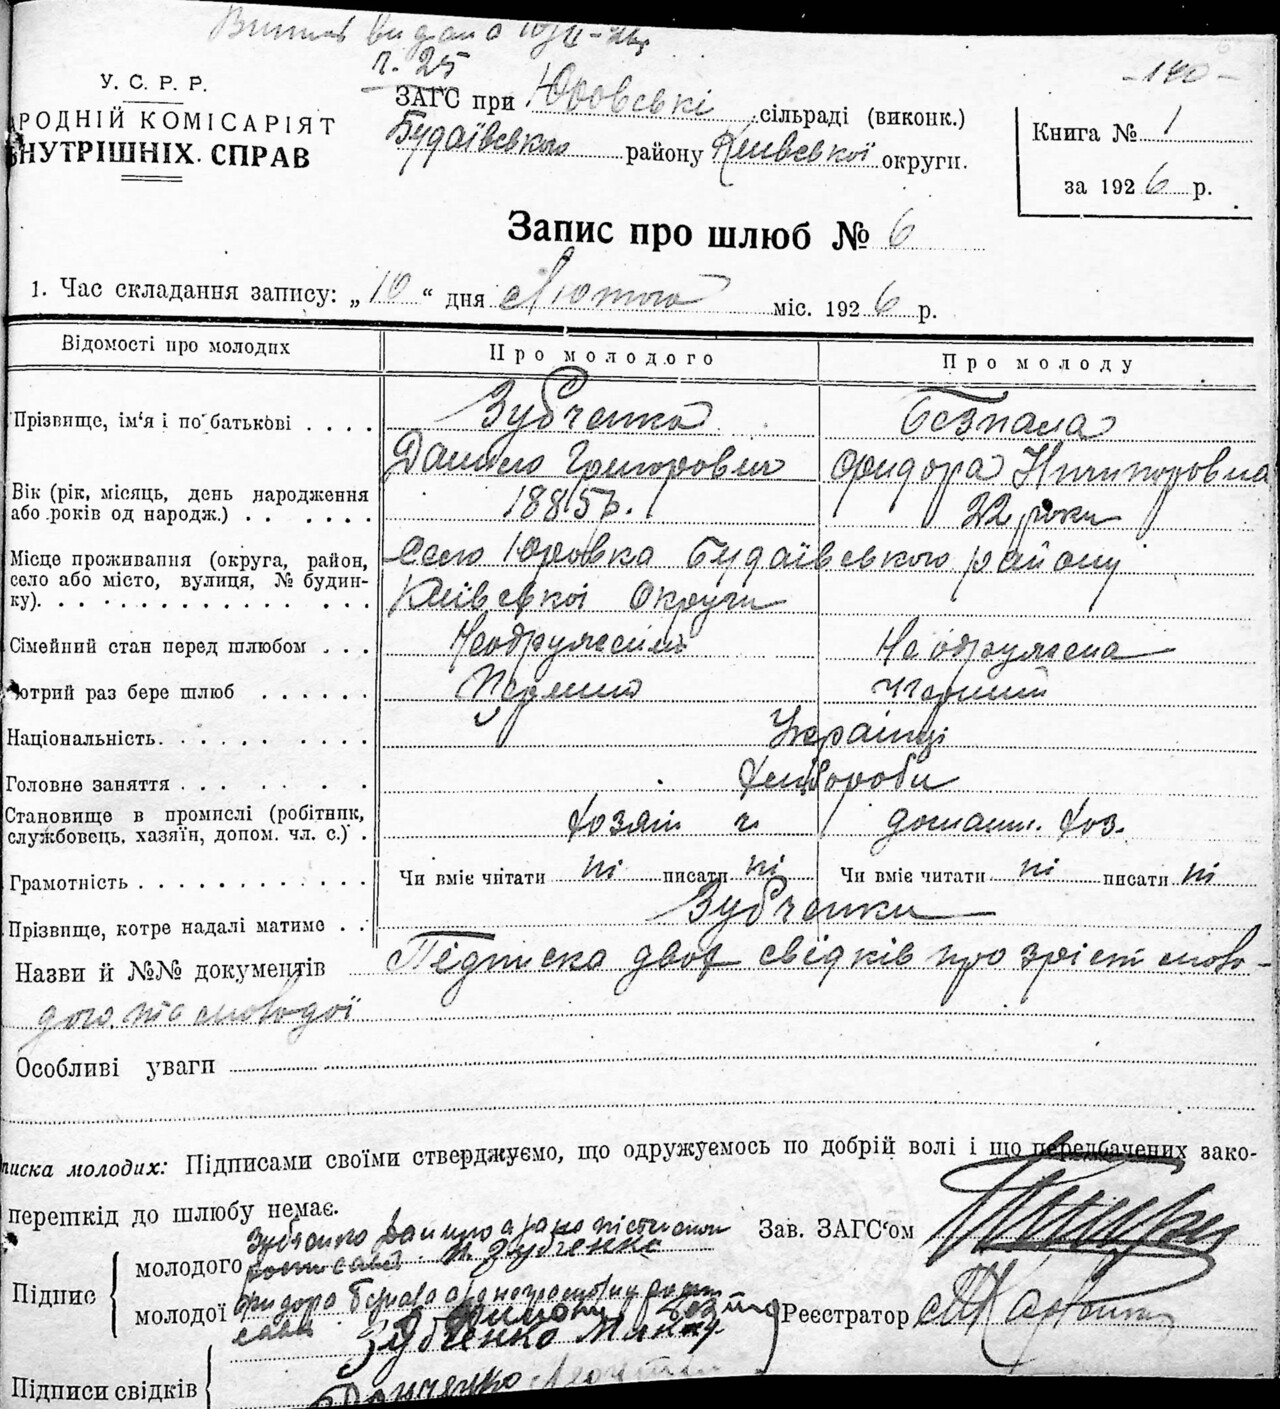 Витяг видано 10/II-26р
г. 25
-140-
У. С. Р. Р.
РОДНІЙ КОМІСАРІЯТ
ВНУТРІШНІХ СПРАВ
ЗАГС при Юровські сільраді (виконк.)
Будаївського району Київської округи.
Книга № 1
за 1926 р.
Запис про шлюб № 6
1. Час складання запису: „10“ дня Лютого міс. 1926 р.
Відомості про молодих Про молодого Про молоду
Прізвище, ім‘я і по батькові . . . . Зубченко Безпала
Данило Григорович Фидора Ничипоровна
Вік (рік, місяць, день народження
або років од народж.) . . . . . . . 1885р. 22 роки
Місце проживання (округа, район,
село або місто, вулиця, № будин-
ку). . . . . . . . . . . . . . . .
Село Юровка Будаївського району
Київської Округи
Сімейний стан перед шлюбом . . . Неодружений Не одружена
Котрий раз бере шлюб . . . . . . Первий
Національність. . . . . . . . . . Українці
Головне заняття . . . . . . . . Хлібороби
Становище в промислі (робітник,
службовець, хазяїн, допом. чл. с.) . Хозяїн домашн. хоз.
Грамотність . . . . . . . . . . . . Чи вміє читати ні писати ні Чи вміє читати ні писати ні
Прізвище, котре надалі матиме . . Зубченки
Назви й №№ документів Підписка двох свідків про зріст моло-
дого та молодої
Особливі уваги
писка молодих: Підписами своїми стверджуємо, що одружуємось по добрій волі і що передбачених зако-
перешкід до шлюбу немає.
Зав. ЗАГС‘ом
Підпис
молодого Зубченко Данило
Зубченко
молодої Фидора
Реєстратор
Зубченко
Підписи свідків